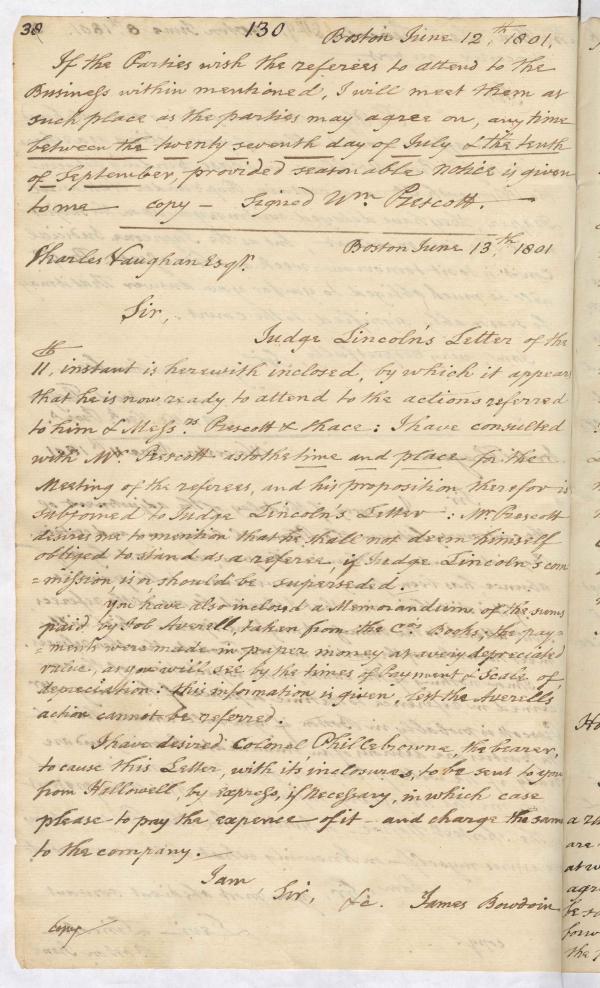 38 130 Boston June 12th. 1801.
If the Parties wish the referees to attend to the
Business within mentioned, I will meet them at
such place as the parties may agree on, any time
between the twenty seventh day of July & the tenth
of September, provided seasonable notice is given
to me — copy — Signed Wm. Prescott. —
Boston June 13th. 1801
Charles Vaughan Esqr.
Sir,
Judge Lincoln's Letter of the
11th, instant is herewith inclosed, by which it appears
that he is now ready to attend to the actions referred
to him & Messrs Prescott & thace: I have consulted
with Mr. Prescott as to the time and place for the
Meeting of the referees, and his proposition therefor is
Subjoined to Judge Lincoln's Letter : Mr. Prescott
desires me to mention that he shall not deem himself
obliged to stand as a referee, if Judge Lincoln's com
=mission is or should be superseded.
You have also inclosed a Memorandum of the sums
paid by Job Averell, taken from the Cos. Books; the pay=
=ments were made in paper money at a very depreciated
value, as you will see by the times of Payment & Scale of
depreciation: this information is given, lest the Averells
action cannot be referred.
I have desired Colonel Phillebrowne, the bearer,
to cause this Letter, with its inclosures, to be sent to you
from Hallowell, by express, if Necessary, in which case
please to pay the expence of it — and charge the same
to the company. —
I am
Sir, &c. James Bowdoin
copy